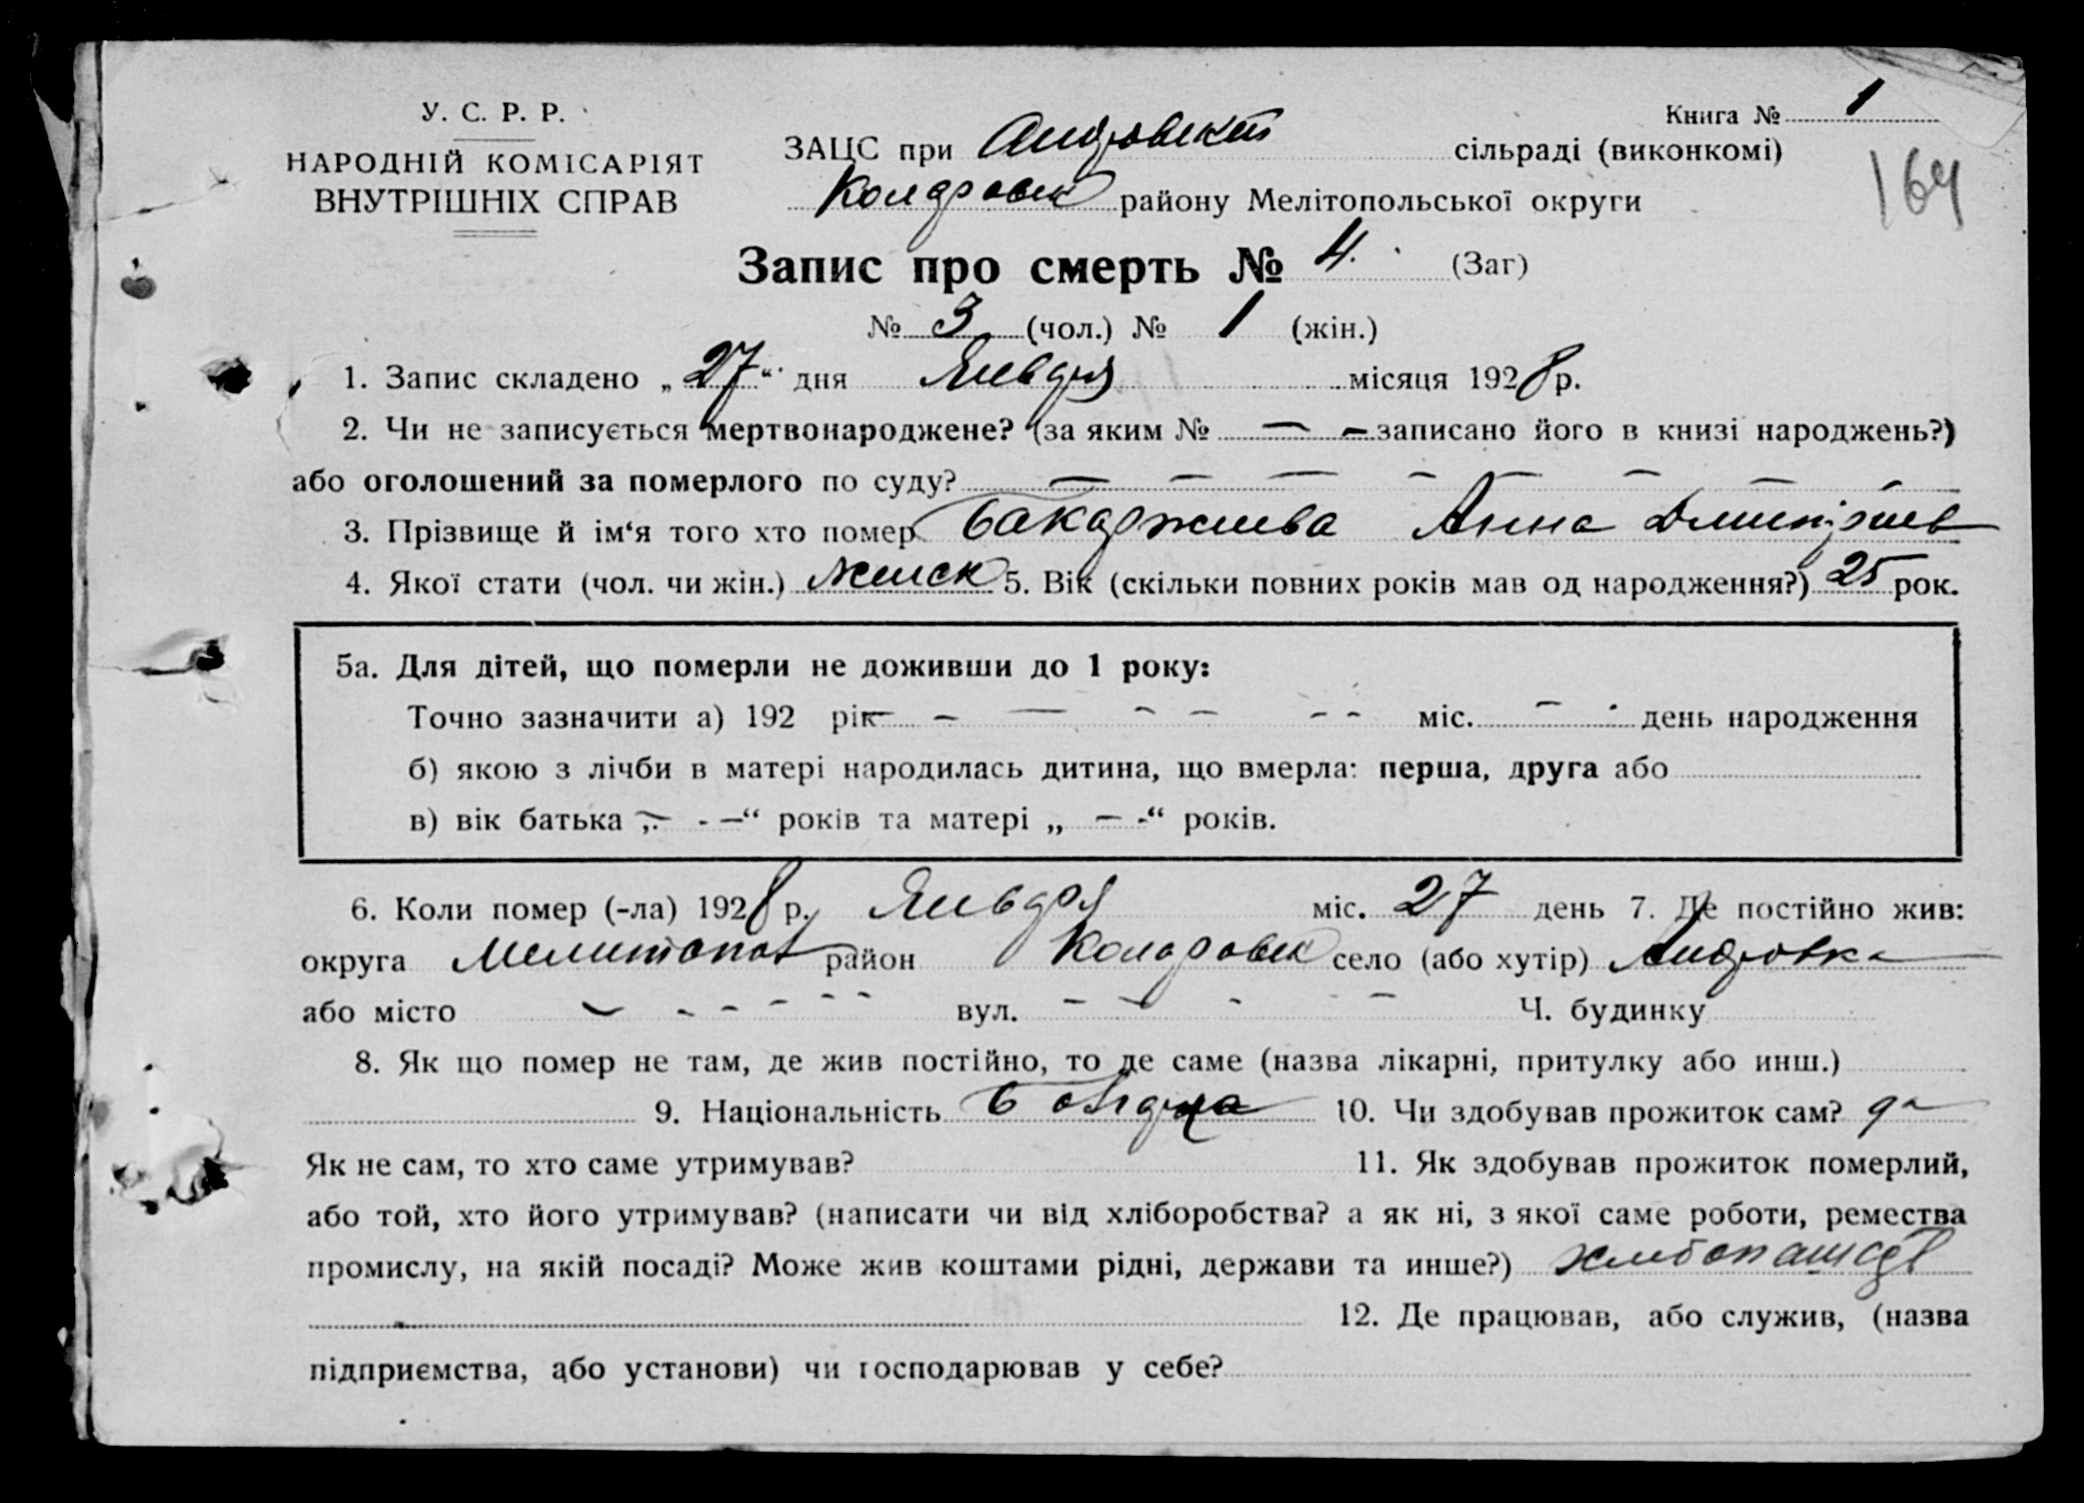 У. С. Р. Р.
НАРОДНІЙ КОМІСАРІЯТ
ВНУТРІШНІХ СПРАВ
Книга № 1
164
ЗАЦС при Андровском сільраді (виконкомі)
Коларовск району Мелітопольської округи
Запис про смерть № 4. (Заг)
№ 3 (чол.) № 1 (жін.)
1. Запис складено „27“ дня Января місяця 1928 р.
2. Чи не записується мертвонароджене? (за яким № — — записано його в книзі народжень?)
або оголошений за померлого по суду? — — — — — — —
3. Прізвище й ім‘я того хто помер Бакаржиева Анна Дмитриев
4. Якої стати (чол. чи жін.) женск 5. Вік (скільки повних років мав од народження?) 25 рок.
5а. Для дітей, що померли не доживши до 1 року:
Точно зазначити а) 192 рік — — — — — — — міс. — день народження
б) якою з лічби в матері народилась дитина, що вмерла: перша, друга або
в) вік батька „— - —“ років та матері „— -“ років.
6. Коли помер (-ла) 1928 р. Января міс. 27 день 7. Де постійно жив:
округа Мелитопол район Коларовск село (або хутір) Андровка
або місто — - - - - - вул. — — - - — Ч. будинку
8. Як що помер не там, де жив постійно, то де саме (назва лікарні, притулку або инш.)
9. Національність Болгарка 10. Чи здобував прожиток сам? да
Як не сам, то хто саме утримував? 11. Як здобував прожиток померлий,
або той, хто його утримував? (написати чи від хліборобства? а як ні, з якої саме роботи, ремества
промислу, на якій посаді? Може жив коштами рідні, держави та инше?)
12. Де працював, або служив, (назва
підприємства, або установи) чи господарював у себе?